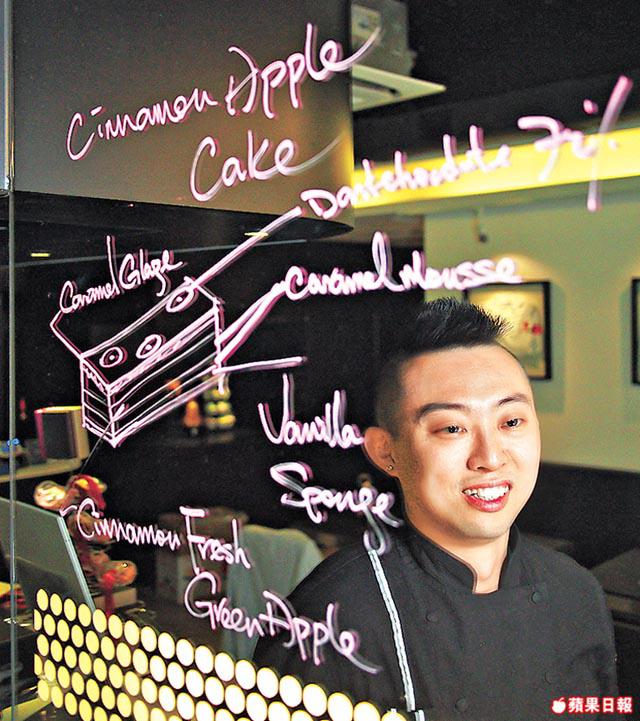 Cinnamon Apple
Cake
Darkchocolate
Caramel Glaze
Caramel Mousse
Vanilla
Sponge
Cinnamon Fresh
Green Apple
蘋果日報